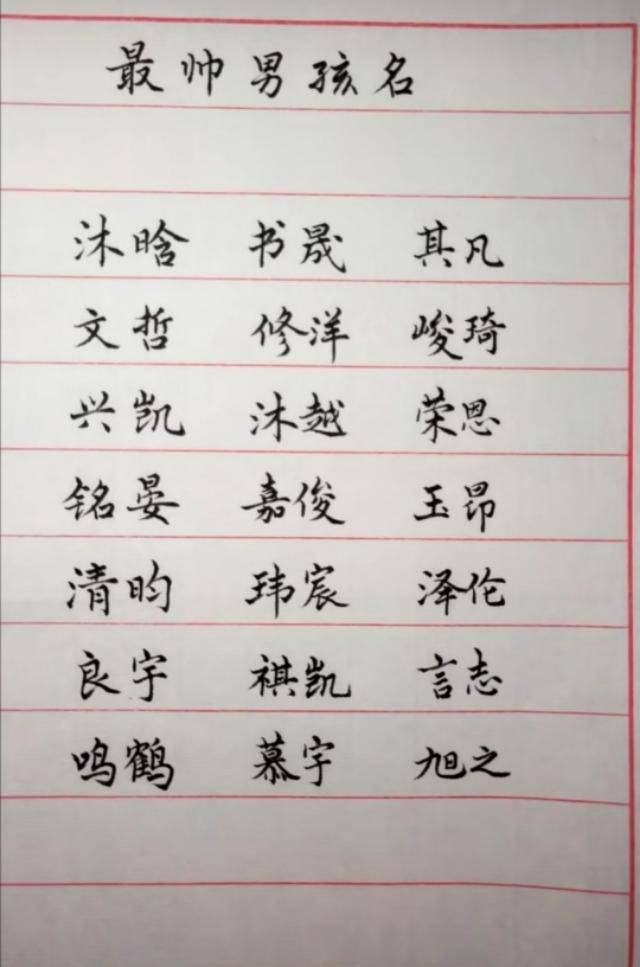 最帅男孩名
沐晗 书晟 其凡
文哲 修洋 峻琦
兴凯 沐越 荣恩
铭晏 嘉俊 玉昂
清昀 玮宸 泽伦
良宇 祺凯 言志
鸣鹤 慕宇 旭之